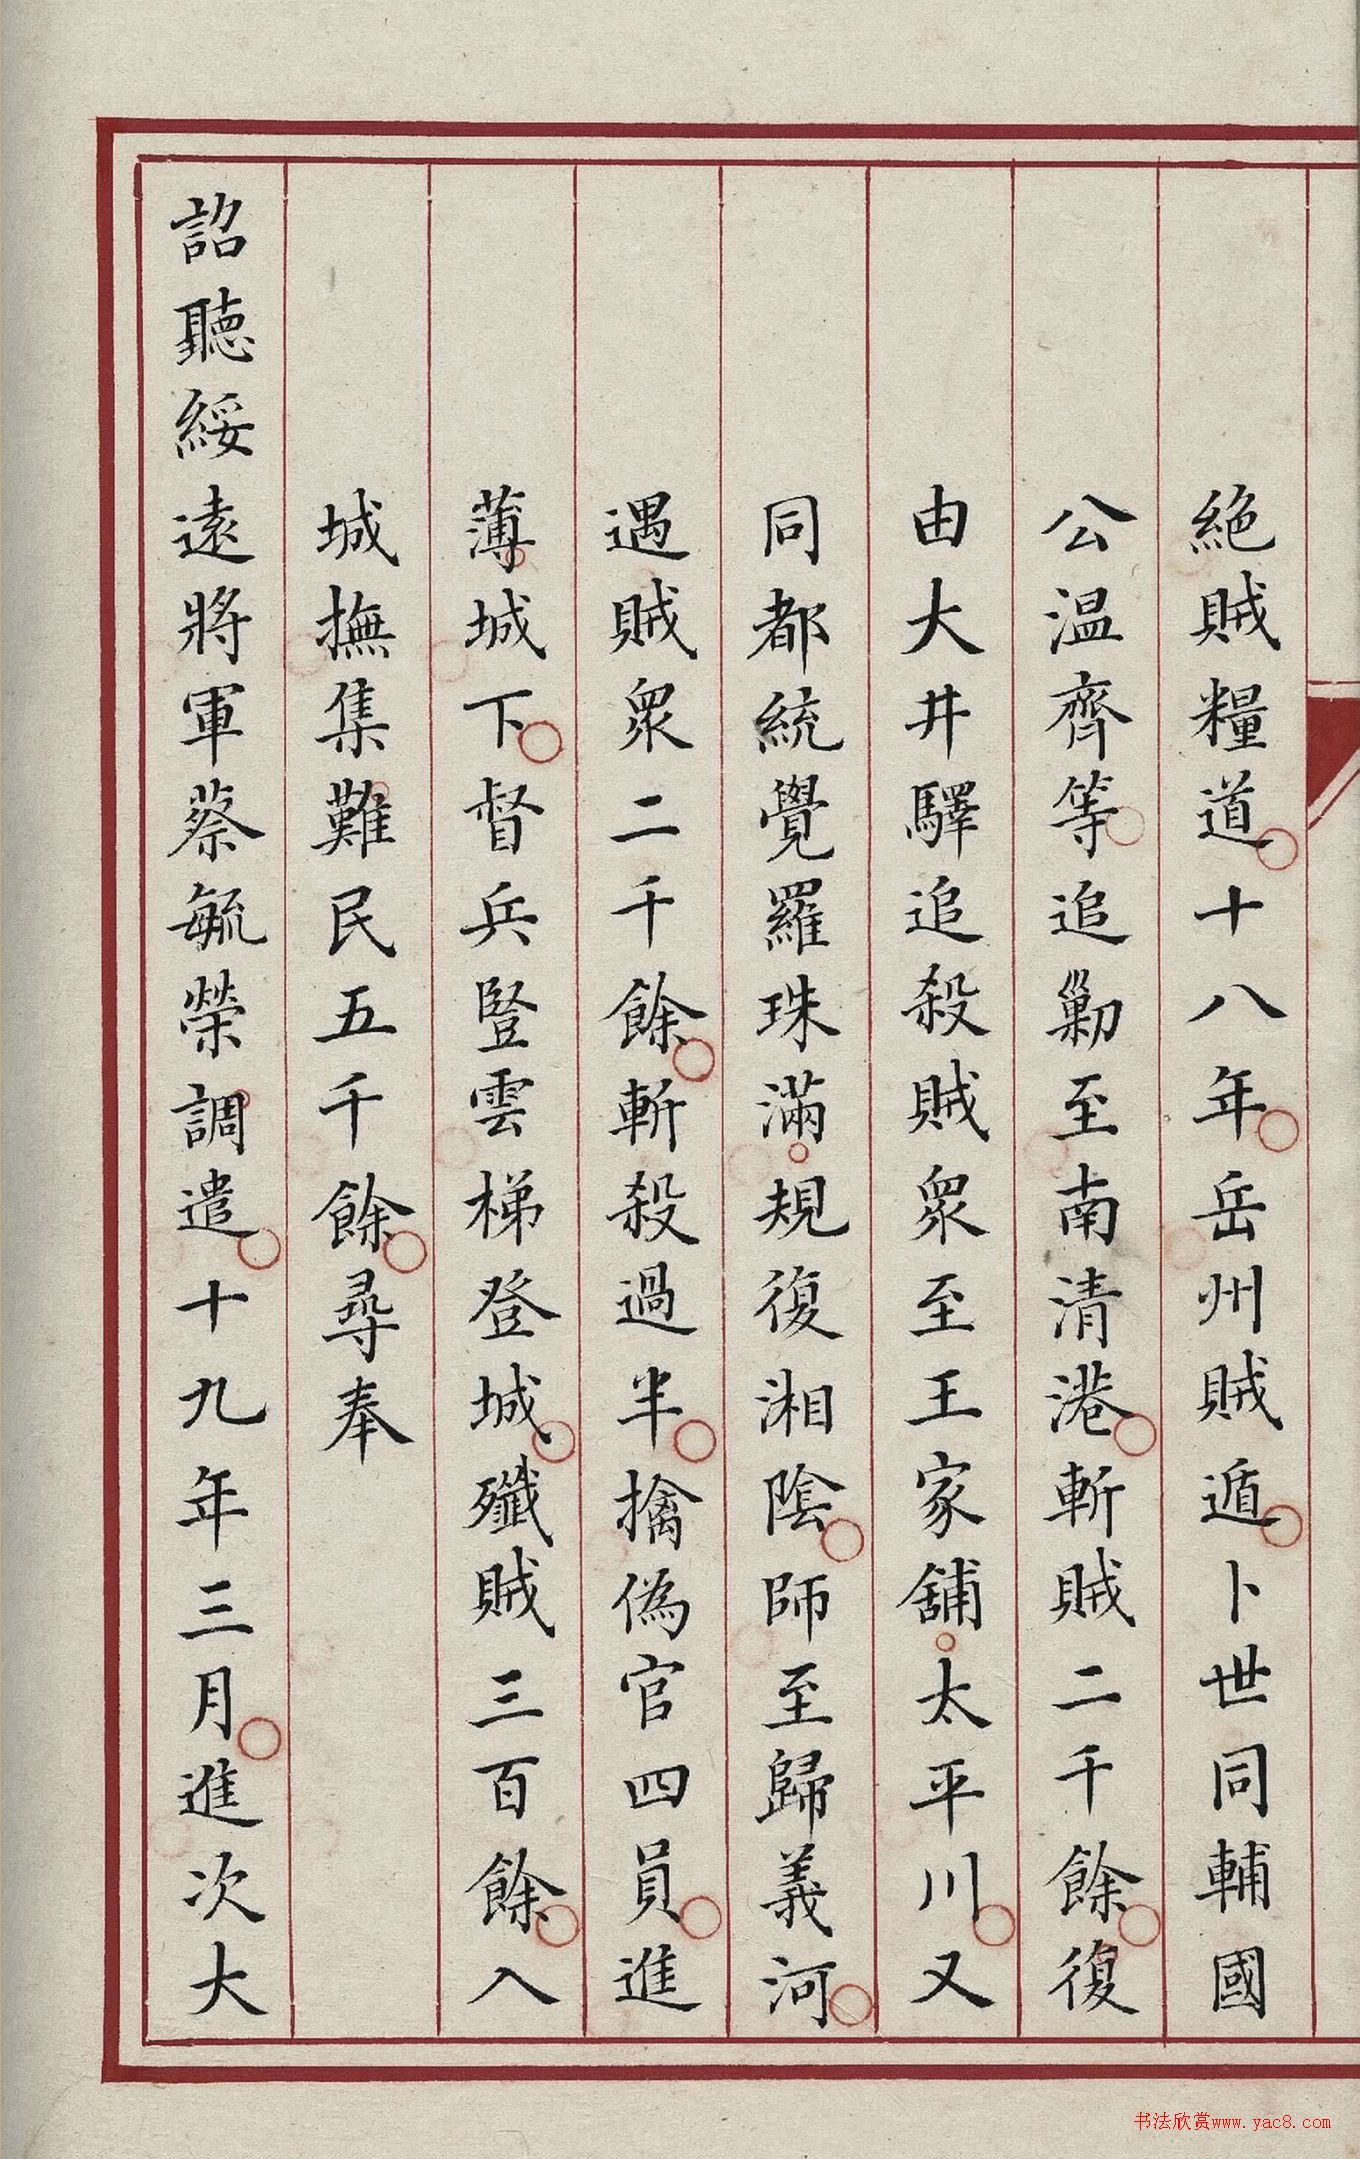 絶賊糧道十八年岳州賊遁卜世同輔國
公溫齊等追勦至南清港斬賊二千餘復
由大井驛追殺賊衆至王家舖太平川又
同都統覺羅珠滿規復湘陰師至歸義河
遇賊衆二千餘斬殺過半擒偽官四員進
薄城下督兵豎雲梯登城殲賊三百餘入
城撫集難民五千餘尋奉
詔聽綏遠將軍蔡毓榮調遣十九年三月進次大
书法欣赏www.yac8.com